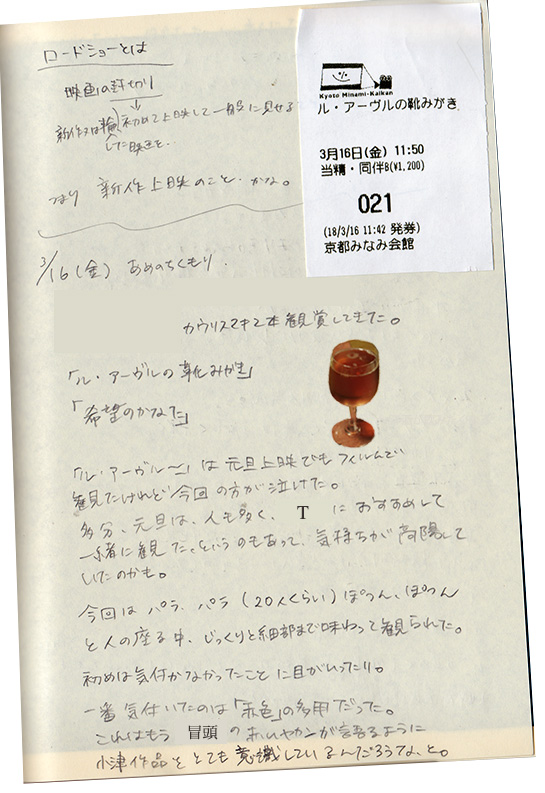 ロードショーとは
映画の封切り
↓
新作又は輸 初めて上映して一般に見せる
した映画を.
つまり 新作上映のこと・かな。
Kyoto Minami-Kaikan
ル・アーヴルの靴みがき
3月16日(金) 11:50
当精・同伴B(¥1,200)
021
(18/3/16 11:42 発券)
京都みなみ会館
3/16(金) あめのちくもり.
カウリスマキ2本観賞してきた。
「ル・アーヴルの靴みがき」
「希望のかなた」
「ル・アーヴル〜」は元旦上映でもフィルムで
観たけれど今回の方が泣けた。
多分、元旦は、人も多く、 T におすすめして
一緒に観た。というのもあって、気持ちが高陽して
いたのかも。
今回はパラ、パラ(20人くらい)ぽつん、ぽつん
と人の座る中、じっくりと細部まで味わって観られた。
初めは気付かなかったことに目がいったり。
一番気付いたのは「赤色」の多用だった。
これはもう 冒頭 の赤いヤカンが語るように
小津作品をとても意識しているんだろうな、と。